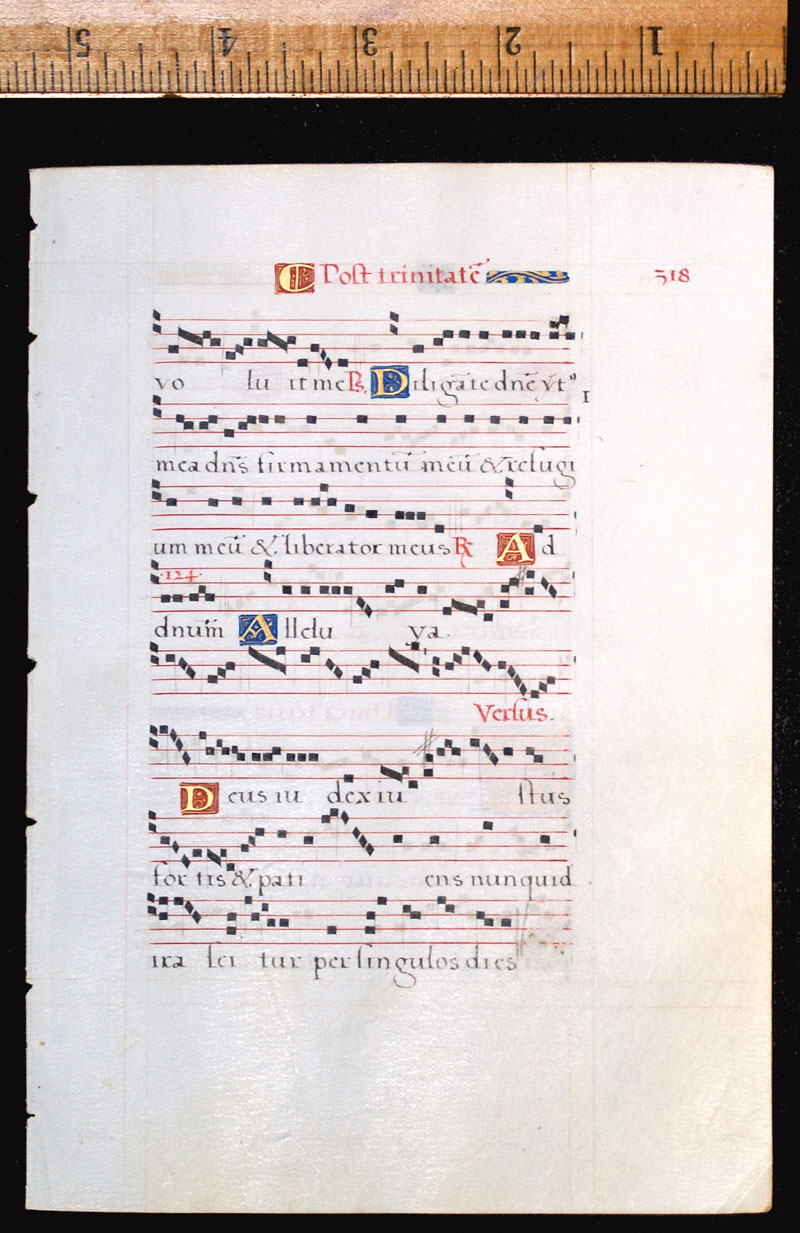 5 4 3 2 1
C Post trinitatē 318
vo lu it me Ps. Diligāte dnē v̄t⁹
mea dn̄s firmamentū meū & refugi
um meū & liberator meus R̃ Ad
124.
dnum̄ Allelu ya
Versus.
Deus iu dex iu stus
for tis & pati ens nunquid
ira sci tur per singulos dies